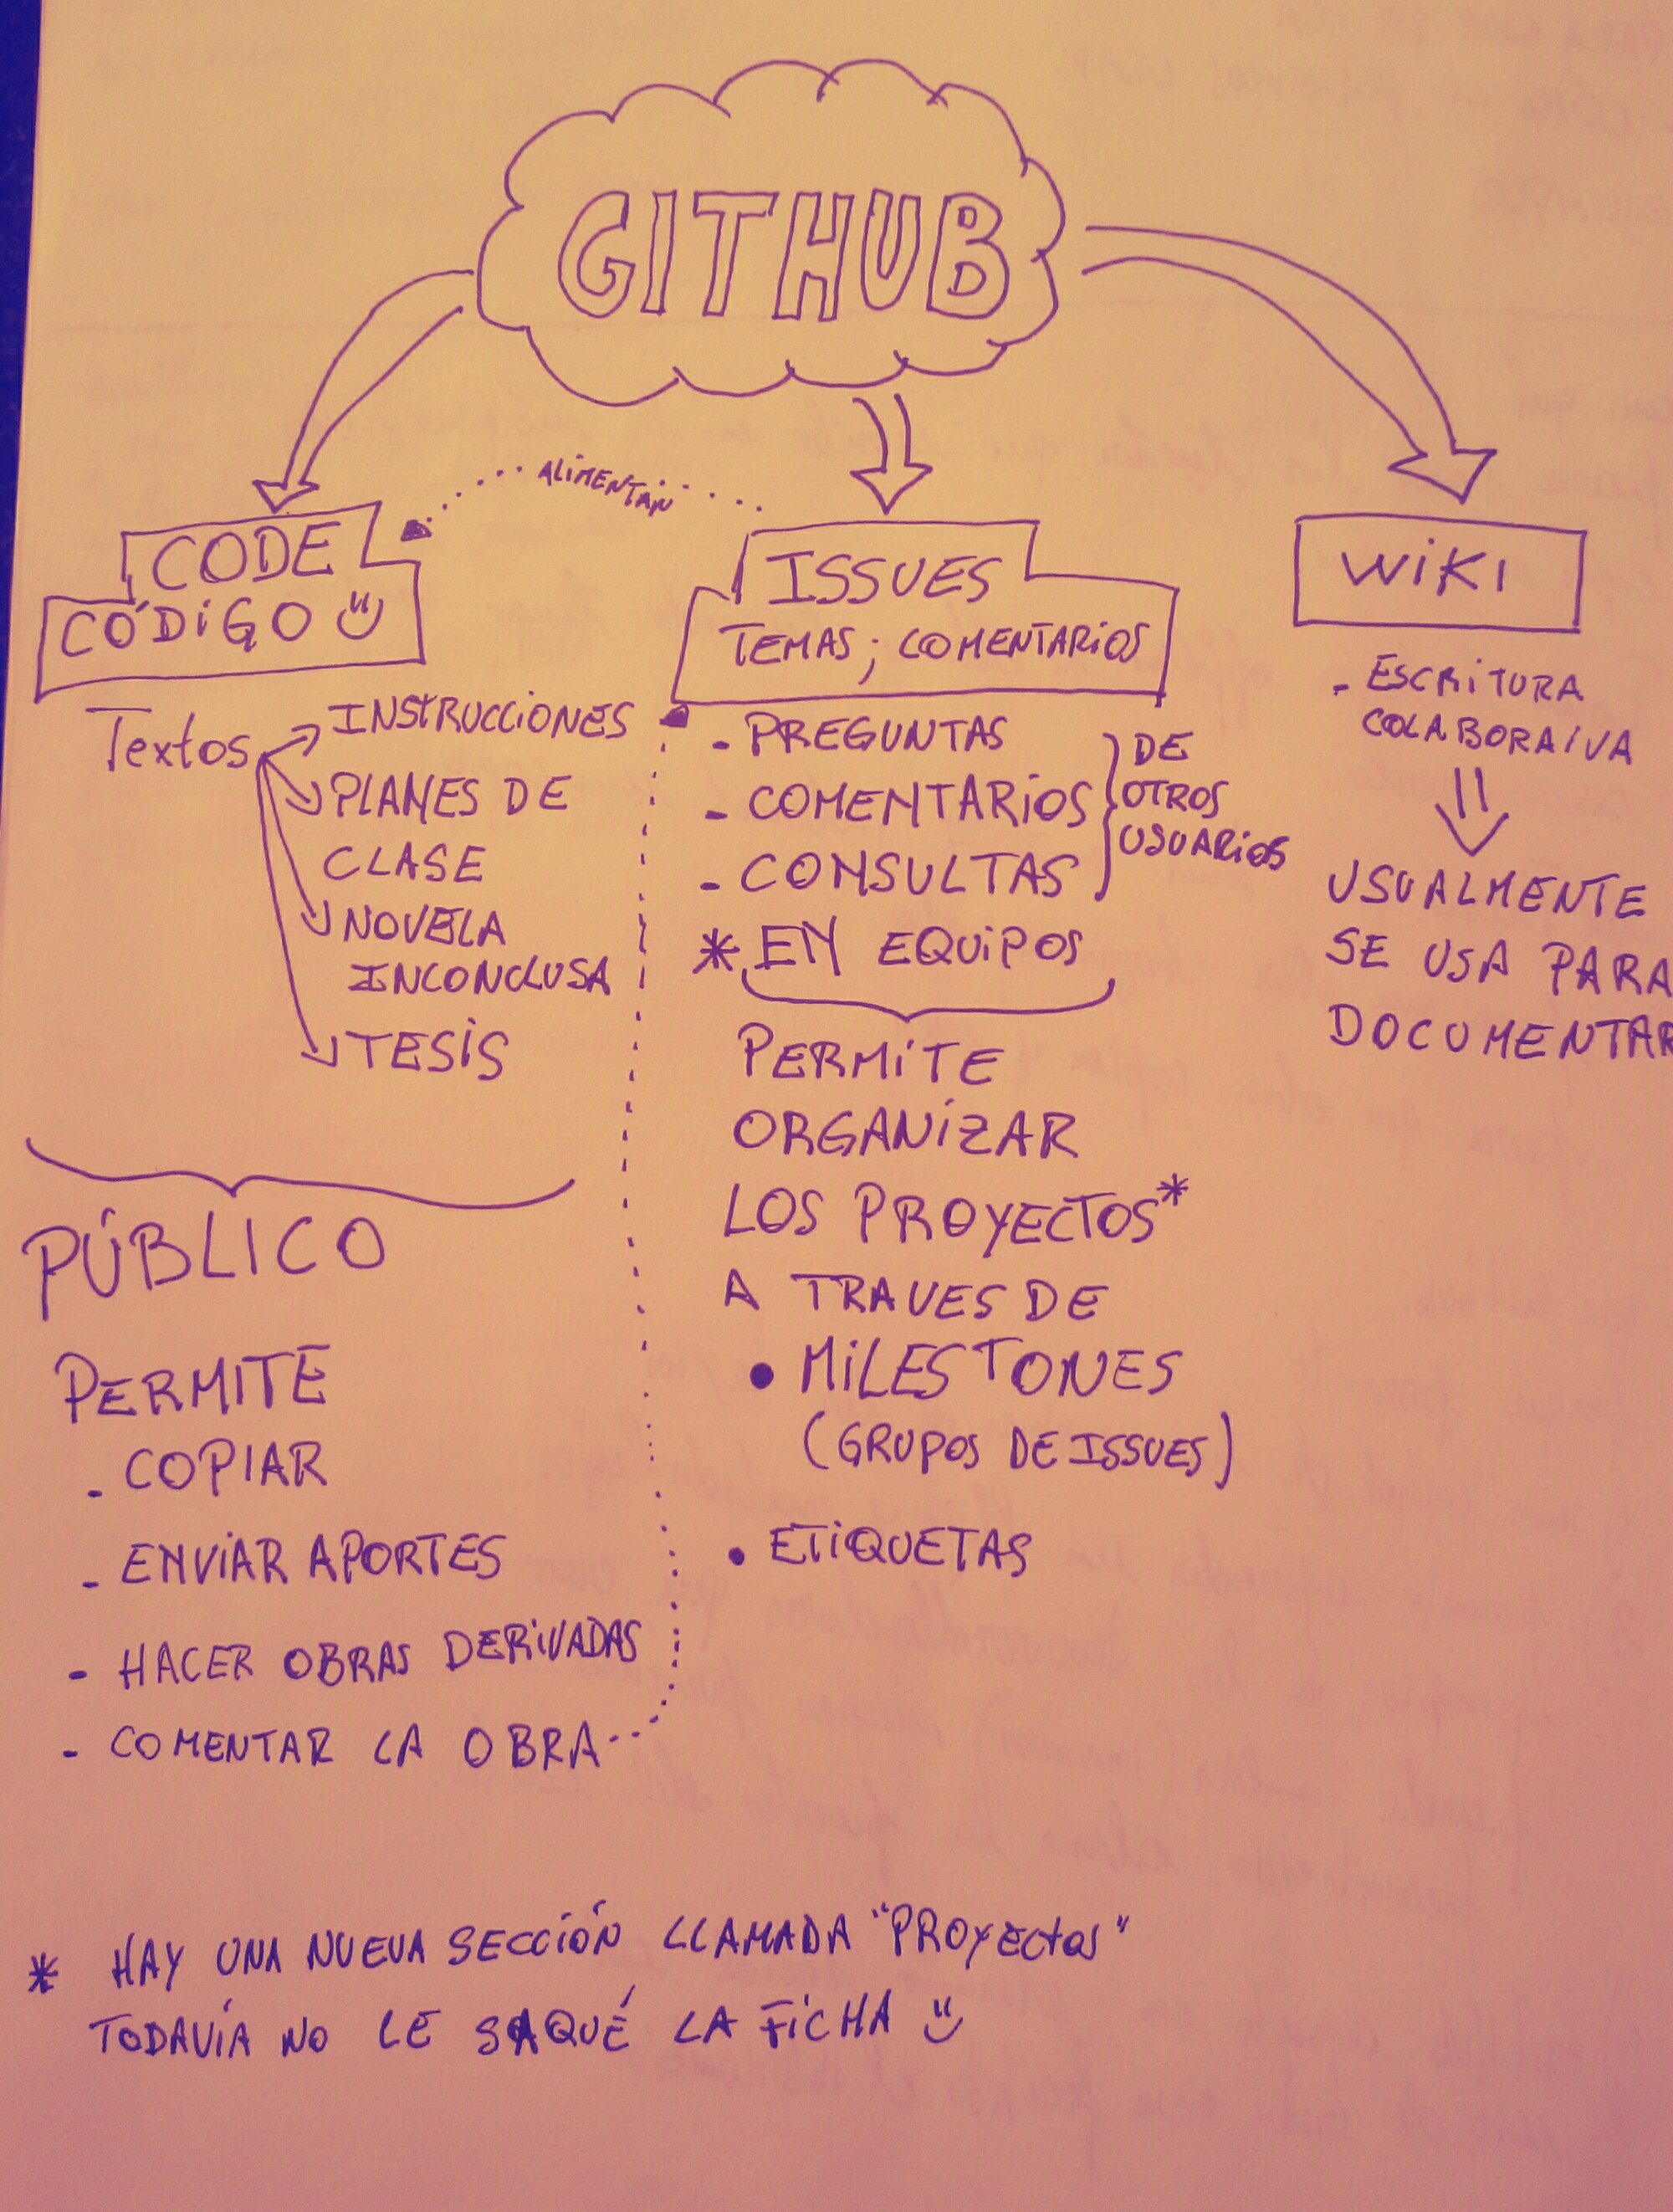 GITHUB
ALIMENTAN
CODE
CÓDIGO
Textos
INSTRUCCIONES
PLANES DE
CLASE
NOVELA
INCONCLUSA
TESIS
PÚBLICO
PERMITE
- COPIAR
- ENVIAR APORTES
- HACER OBRAS DERIVADAS
- COMENTAR LA OBRA
ISSUES
TEMAS; COMENTARIOS
- PREGUNTAS
- COMENTARIOS
- CONSULTAS
DE
OTROS
USUARIOS
* EN EQUIPOS
PERMITE
ORGANIZAR
LOS PROYECTOS*
A TRAVES DE
• MILESTONES
(GRUPOS DE ISSUES)
• ETIQUETAS
WIKI
- ESCRITURA
COLABORAIVA
USUALMENTE
SE USA PARA
DOCUMENTAR
* HAY UNA NUEVA SECCIÓN LLAMADA "PROYECTOS"
TODAVÍA NO LE SAQUÉ LA FICHA